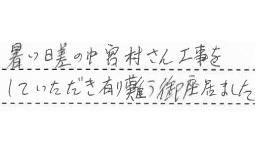 暑い日差の中宮村さん工事を
していただき有り難う御座居ました